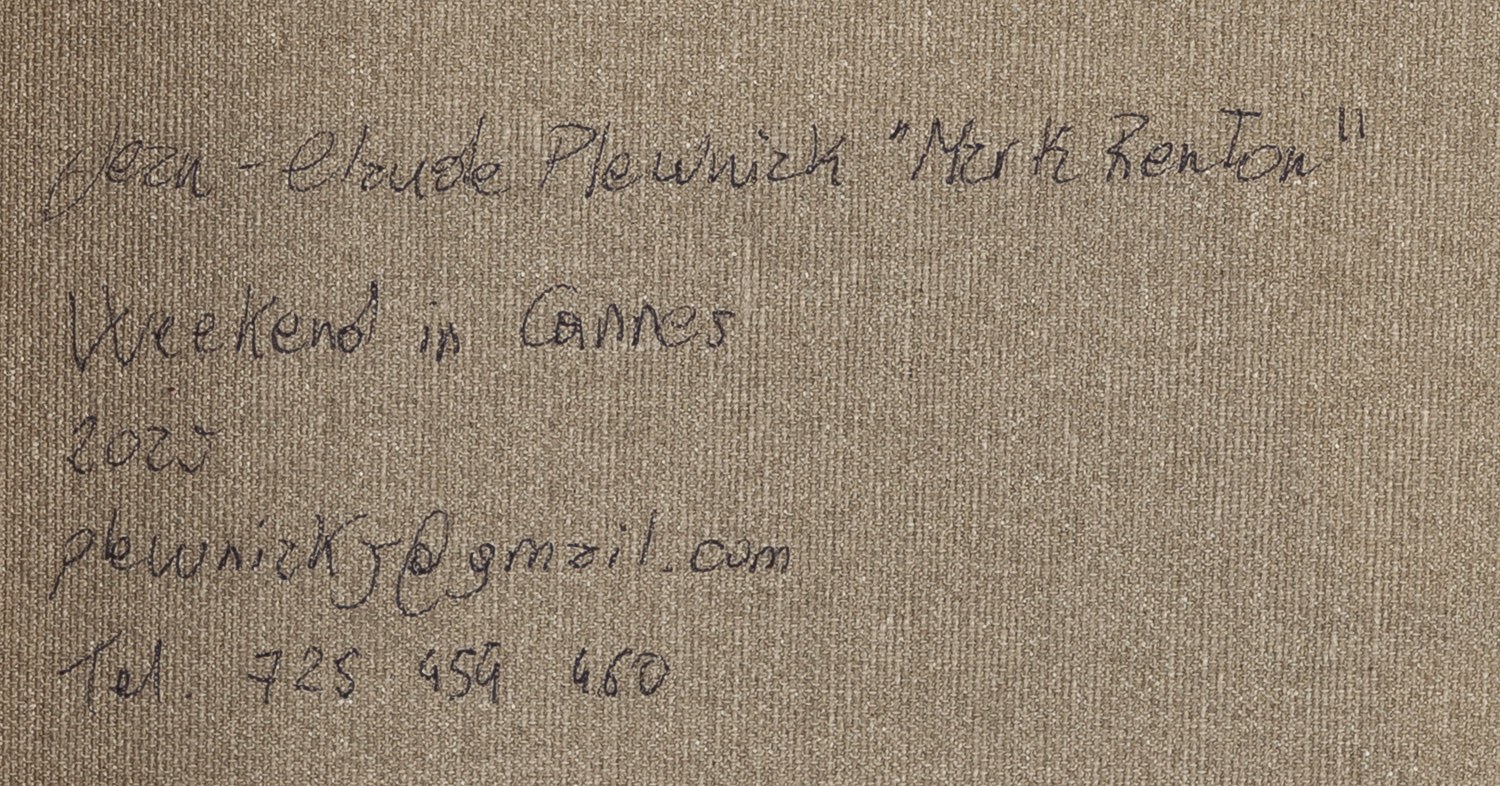 Jean-Claude Plewniak "Mark Renton"
Weekend in Cannes
2025
plewniakj@gmail.com
Tel. 725 454 460